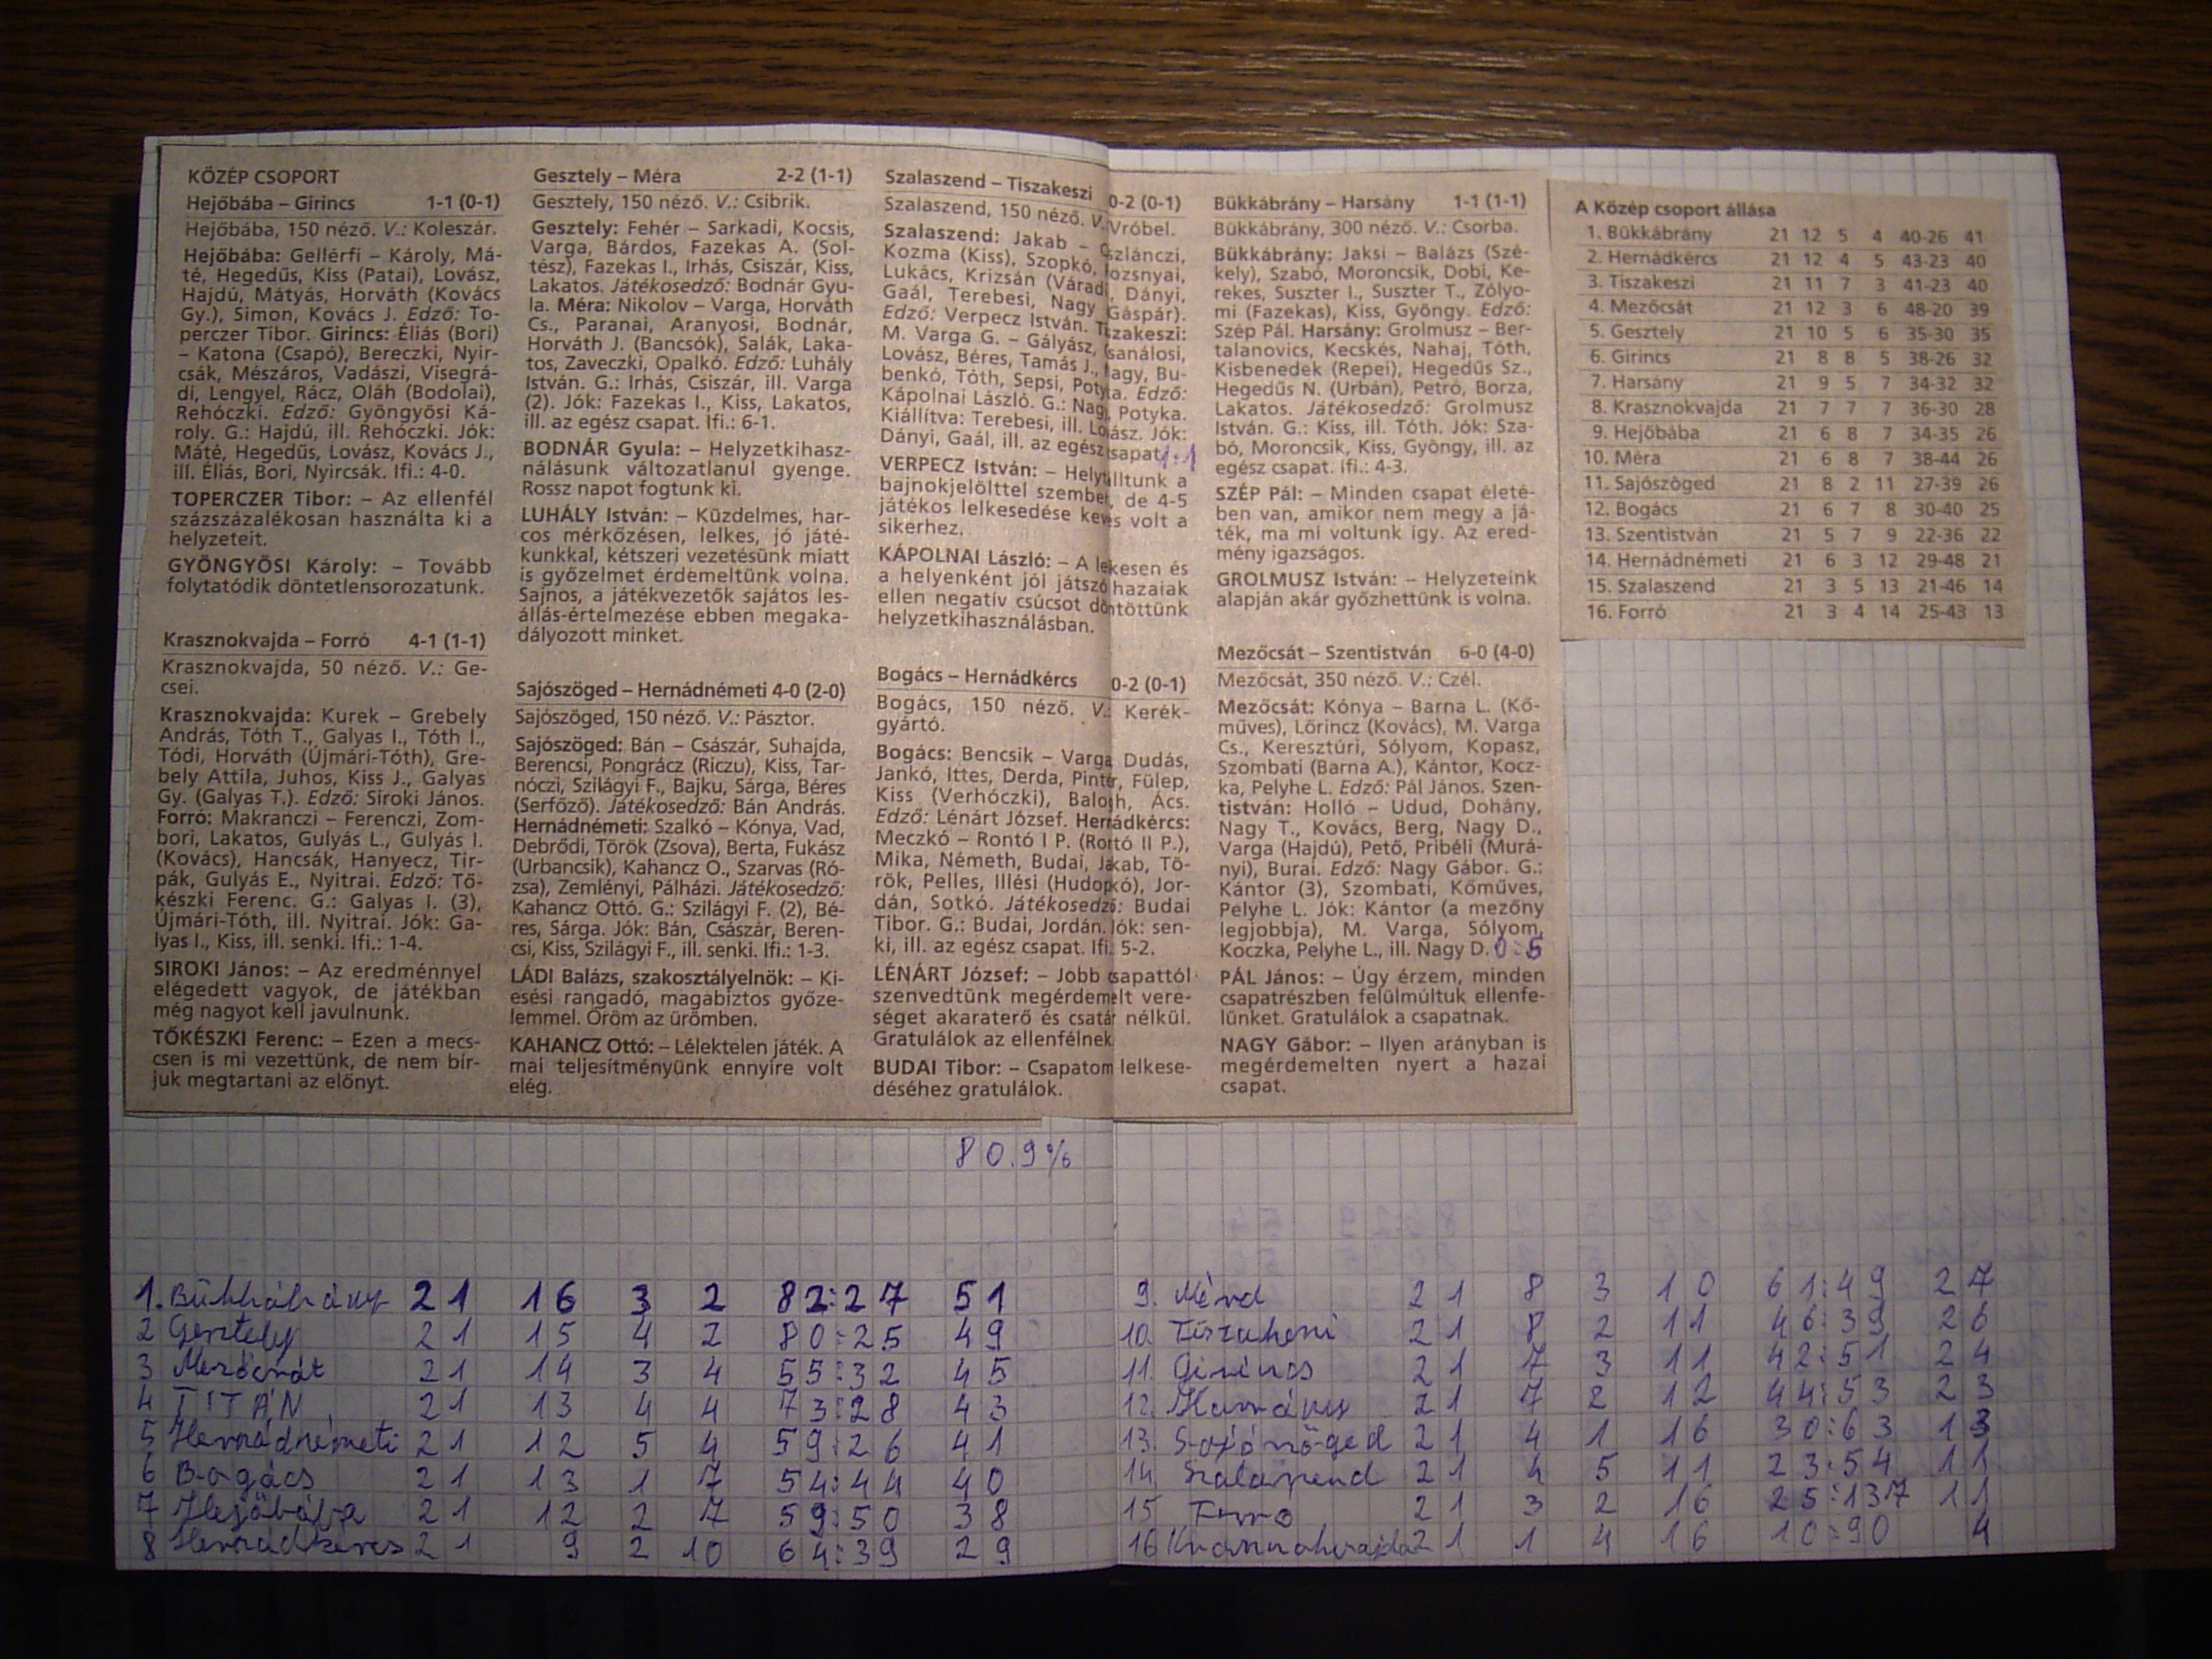 KÖZÉP CSOPORT
Hejőbába – Girincs 1-1 (0-1)
Hejőbába, 150 néző. V.: Koleszár.
Hejőbába: Gellérfi – Károly, Má-
té, Hegedűs, Kiss (Patai), Lovász,
Hajdú, Mátyás, Horváth (Kovács
Gy.), Simon, Kovács J. Edző: To-
perczer Tibor. Girincs: Éliás (Bori)
– Katona (Csapó), Bereczki, Nyir-
csák, Mészáros, Vadászi, Visegrá-
di, Lengyel, Rácz, Oláh (Bodolai),
Rehóczki. Edző: Gyöngyösi Ká-
roly. G.: Hajdú, ill. Rehóczki. Jók:
Máté, Hegedűs, Lovász, Kovács J.,
ill. Éliás, Bori, Nyircsák. Ifi.: 4-0.
TOPERCZER Tibor: – Az ellenfél
százszázalékosan használta ki a
helyzeteit.
GYÖNGYÖSI Károly: – Tovább
folytatódik döntetlensorozatunk.
Krasznokvajda – Forró 4-1 (1-1)
Krasznokvajda, 50 néző. V.: Ge-
csei.
Krasznokvajda: Kurek – Grebely
András, Tóth T., Galyas I., Tóth I.,
Tódi, Horváth (Újmári-Tóth), Gre-
bely Attila, Juhos, Kiss J., Galyas
Gy. (Galyas T.). Edző: Siroki János.
Forró: Makranczi – Ferenczi, Zom-
bori, Lakatos, Gulyás L., Gulyás I.
(Kovács), Hancsák, Hanyecz, Tir-
pák, Gulyás E., Nyitrai. Edző: Tő-
készki Ferenc. G.: Galyas I. (3),
Újmári-Tóth, ill. Nyitrai. Jók: Ga-
lyas I., Kiss, ill. senki. Ifi.: 1-4.
SIROKI János: – Az eredménnyel
elégedett vagyok, de játékban
még nagyot kell javulnunk.
TŐKÉSZKI Ferenc: – Ezen a mecs-
csen is mi vezettünk, de nem bír-
juk megtartani az előnyt.
Gesztely – Méra 2-2 (1-1)
Gesztely, 150 néző. V.: Csibrik.
Gesztely: Fehér – Sarkadi, Kocsis,
Varga, Bárdos, Fazekas A. (Sol-
tész), Fazekas I., Irhás, Csiszár, Kiss,
Lakatos. Játékosedző: Bodnár Gyu-
la. Méra: Nikolov – Varga, Horváth
Cs., Paranai, Aranyosi, Bodnár,
Horváth J. (Bancsók), Salák, Laka-
tos, Zaveczki, Opalkó. Edző: Luhály
István. G.: Irhás, Csiszár, ill. Varga
(2). Jók: Fazekas I., Kiss, Lakatos,
ill. az egész csapat. Ifi.: 6-1.
BODNÁR Gyula: – Helyzetkihasz-
nálásunk változatlanul gyenge.
Rossz napot fogtunk ki.
LUHÁLY István: – Küzdelmes, har-
cos mérkőzésen, lelkes, jó játé-
kunkkal, kétszeri vezetésünk miatt
is győzelmet érdemeltünk volna.
Sajnos, a játékvezetők sajátos les-
állás-értelmezése ebben megaka-
dályozott minket.
Sajószöged – Hernádnémeti 4-0 (2-0)
Sajószöged, 150 néző. V.: Pásztor.
Sajószöged: Bán – Császár, Suhajda,
Berencsi, Pongrácz (Riczu), Kiss, Tar-
nóczi, Szilágyi F., Bajku, Sárga, Béres
(Serfőző). Játékosedző: Bán András.
Hernádnémeti: Szalkó – Kónya, Vad,
Debrődi, Török (Zsova), Berta, Fukász
(Urbancsik), Kahancz O., Szarvas (Ró-
zsa), Zemlényi, Pálházi. Játékosedző:
Kahancz Ottó. G.: Szilágyi F. (2), Bé-
res, Sárga. Jók: Bán, Császár, Beren-
csi, Kiss, Szilágyi F., ill. senki. Ifi.: 1-3.
LÁDI Balázs, szakosztályelnök: – Ki-
esési rangadó, magabiztos győze-
lemmel. Öröm az ürömben.
KAHANCZ Ottó: – Lélektelen játék. A
mai teljesítményünk ennyire volt
elég.
Szalaszend – Tiszakeszi 0-2 (0-1)
Szalaszend, 150 néző. V.: Vróbel.
Szalaszend: Jakab – Oszlánczi,
Kozma (Kiss), Szopkó, Rozsnyai,
Lukács, Krizsán (Váradi, Dányi,
Gaál, Terebesi, Nagy Gáspár).
Edző: Verpecz István. Tiszakeszi:
M. Varga G. – Gályász, Csanálosi,
Lovász, Béres, Tamás J., Nagy, Bu-
benkó, Tóth, Sepsi, Potyka. Edző:
Kápolnai László. G.: Nagy, Potyka.
Kiállítva: Terebesi, ill. Lovász. Jók:
Dányi, Gaál, ill. az egész csapat. 1:1
VERPECZ István: – Helytálltunk a
bajnokjelölttel szemben, de 4-5
játékos lelkesedése kevés volt a
sikerhez.
KÁPOLNAI László: – A lelkesen és
a helyenként jól játszó hazaiak
ellen negatív csúcsot döntöttünk
helyzetkihasználásban.
Bogács – Hernádkércs 0-2 (0-1)
Bogács, 150 néző. V.: Kerék-
gyártó.
Bogács: Bencsik – Varga Dudás,
Jankó, Ittes, Derda, Pintér, Fülep,
Kiss (Verhóczki), Balogh, Ács.
Edző: Lénárt József. Hernádkércs:
Meczkó – Rontó I P. (Rontó II P.),
Mika, Németh, Budai, Jakab, Tö-
rök, Pelles, Illési (Hudopkó), Jor-
dán, Sotkó. Játékosedző: Budai
Tibor. G.: Budai, Jordán. Jók: sen-
ki, ill. az egész csapat. Ifi. 5-2.
LÉNÁRT József: – Jobb csapattól
szenvedtünk megérdemelt vere-
séget akaraterő és csatár nélkül.
Gratulálok az ellenfélnek.
BUDAI Tibor: – Csapatom lelkese-
déséhez gratulálok.
Bükkábrány – Harsány 1-1 (1-1)
Bükkábrány, 300 néző. V.: Csorba.
Bükkábrány: Jaksi – Balázs (Szé-
kely), Szabó, Moroncsik, Dobi, Ke-
rekes, Suszter I., Suszter T., Zólyo-
mi (Fazekas), Kiss, Gyöngy. Edző:
Szép Pál. Harsány: Grolmusz – Ber-
talanovics, Kecskés, Nahaj, Tóth,
Kisbenedek (Repei), Hegedűs Sz.,
Hegedűs N. (Urbán), Petró, Borza,
Lakatos. Játékosedző: Grolmusz
István. G.: Kiss, ill. Tóth. Jók: Sza-
bó, Moroncsik, Kiss, Gyöngy, ill. az
egész csapat. Ifi.: 4-3.
SZÉP Pál: – Minden csapat életé-
ben van, amikor nem megy a já-
ték, ma mi voltunk így. Az ered-
mény igazságos.
GROLMUSZ István: – Helyzeteink
alapján akár győzhettünk is volna.
Mezőcsát – Szentistván 6-0 (4-0)
Mezőcsát, 350 néző. V.: Czél.
Mezőcsát: Kónya – Barna L. (Kő-
műves), Lőrincz (Kovács), M. Varga
Cs., Keresztúri, Sólyom, Kopasz,
Szombati (Barna A.), Kántor, Kocz-
ka, Pelyhe L. Edző: Pál János. Szen-
tistván: Holló – Udud, Dohány,
Nagy T., Kovács, Berg, Nagy D.,
Varga (Hajdú), Pető, Pribéli (Murá-
nyi), Burai. Edző: Nagy Gábor. G.:
Kántor (3), Szombati, Kőműves,
Pelyhe L. Jók: Kántor (a mezőny
legjobbja), M. Varga, Sólyom,
Koczka, Pelyhe L., ill. Nagy D. 0:5
PÁL János: – Úgy érzem, minden
csapatrészben felülmúltuk ellenfe-
lünket. Gratulálok a csapatnak.
NAGY Gábor: – Ilyen arányban is
megérdemelten nyert a hazai
csapat.
A Közép csoport állása
1. Bükkábrány 21 12 5 4 40-26 41
2. Hernádkércs 21 12 4 5 43-23 40
3. Tiszakeszi 21 11 7 3 41-23 40
4. Mezőcsát 21 12 3 6 48-20 39
5. Gesztely 21 10 5 6 35-30 35
6. Girincs 21 8 8 5 38-26 32
7. Harsány 21 9 5 7 34-32 32
8. Krasznokvajda 21 7 7 7 36-30 28
9. Hejőbába 21 6 8 7 34-35 26
10. Méra 21 6 8 7 38-44 26
11. Sajószöged 21 8 2 11 27-39 26
12. Bogács 21 6 7 8 30-40 25
13. Szentistván 21 5 7 9 22-36 22
14. Hernádnémeti 21 6 3 12 29-48 21
15. Szalaszend 21 3 5 13 21-46 14
16. Forró 21 3 4 14 25-43 13
80.9%
1. Bükkábrány 21 16 3 2 82:27 51
2 Gesztely 21 15 4 2 80:25 49
3 Mezőcsát 21 14 3 4 55:32 45
4 TITÁN 21 13 4 4 73:28 43
5 Hernádnémeti 21 12 5 4 59:26 41
6 Bogács 21 13 1 7 54:44 40
7 Hejőbába 21 12 2 7 59:50 38
8 Hernádkércs 21 9 2 10 64:39 29
9. Méra 21 8 3 10 61:49 27
10. Tiszakeszi 21 8 2 11 46:39 26
11. Girincs 21 7 3 11 42:51 24
12. Harsány 21 7 2 12 44:53 23
13. Sajószöged 21 4 1 16 30:63 13
14. Szalaszend 21 4 5 11 23:54 11
15 Forró 21 3 2 16 25:137 11
16 Krasznokvajda 21 1 4 16 10:90 4